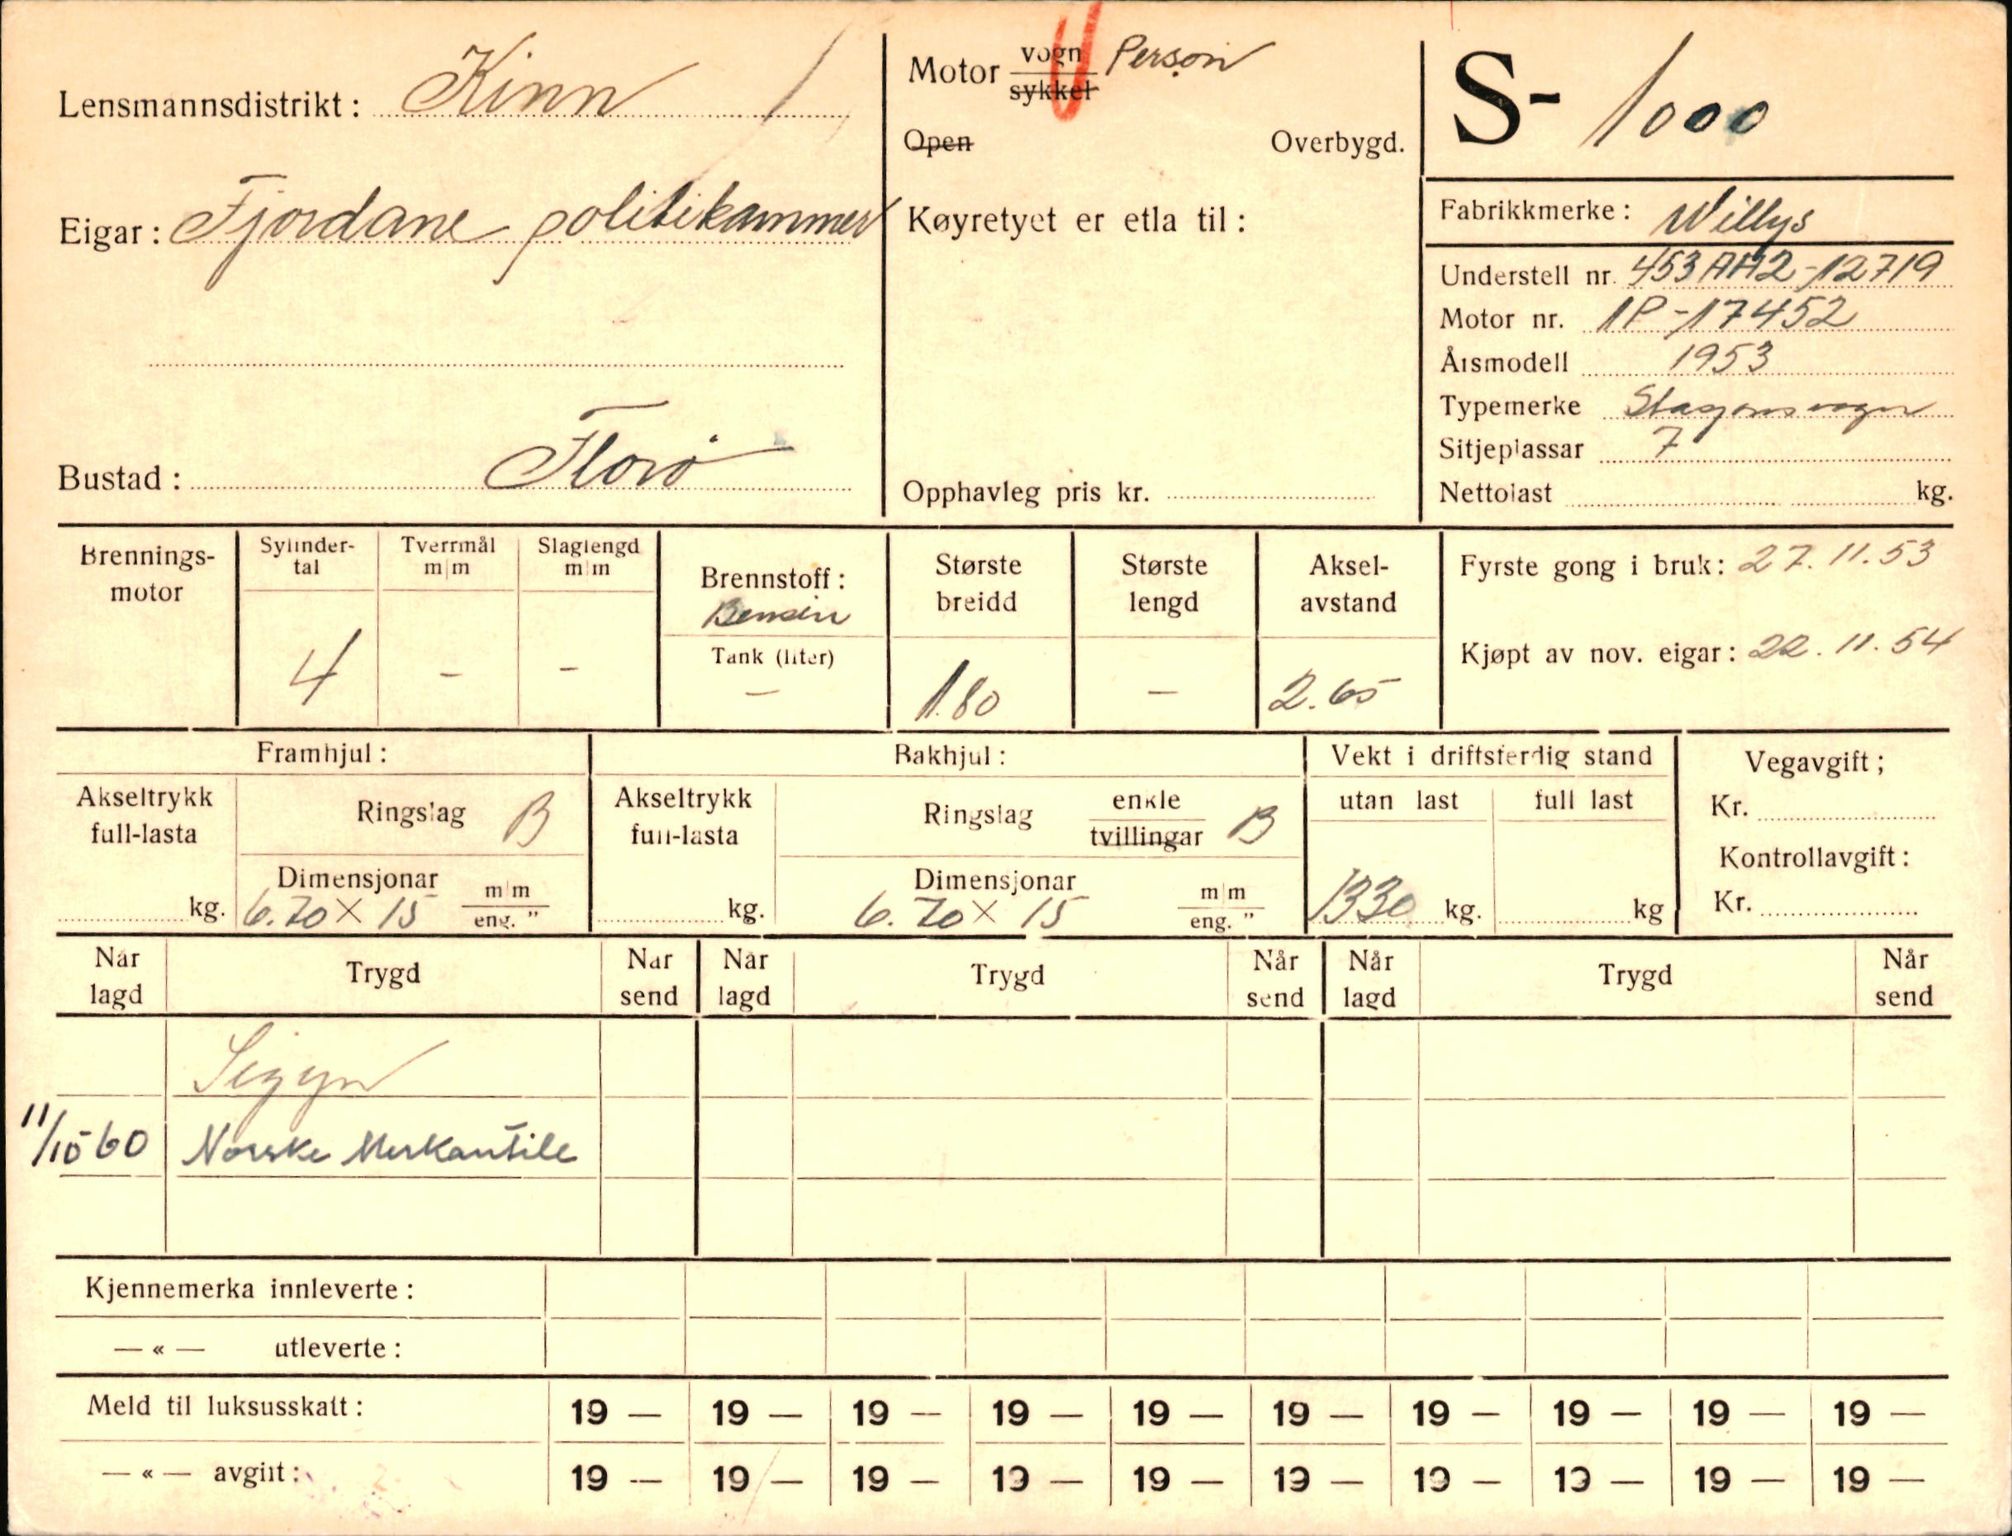 Lensmannsdistrikt: Kinn
Eigar: Fjordane politikammer
Bustad: Florø
Motor vogn Person
sykkel
Open Overbygd.
Køyretyet er etla til:
Opphavleg pris kr.
S- 1000
Fabrikkmerke: Willys
Understell nr. 453AA2-12719
Motor nr. 1P-17452
Årsmodell 1953
Typemerke Stasjonsvogn
Sitjeplassar 7
Nettolast kg.
Brennings-
motor
Sylinder-
tal
4
Tverrmål
m|m
-
Slaglengd
m|m
-
Brennstoff:
Bensin
Tank (liter)
-
Største
breidd
1.80
Største
lengd
-
Aksel-
avstand
2.65
Fyrste gong i bruk: 27.11.53
Kjøpt av nov. eigar: 22.11.54
Framhjul:
Akseltrykk
full-lasta
kg.
Ringslag B
Dimensjonar m|m
6.70 X 15 eng. "
Bakhjul:
Akseltrykk
full-lasta
kg.
Ringslag enkle
tvillingar B
Dimensjonar m|m
6.70 X 15 eng. "
Vekt i driftsferdig stand
utan last full last
1330 kg. kg
Vegavgift;
Kr.
Kontrollavgift:
Kr.
Når
lagd Trygd Når
send Når
lagd Trygd Når
send Når
lagd Trygd Når
send
Sigyn
11/10 60 Norske Merkantile
Kjennemerka innleverte:
— « — utleverte:
Meld til luksusskatt: 19 — 19 — 19 — 19 — 19 — 19 — 19 — 19 — 19 — 19 —
— « — avgift: 19 — 19 — 19 — 19 — 19 — 19 — 19 — 19 — 19 — 19 —